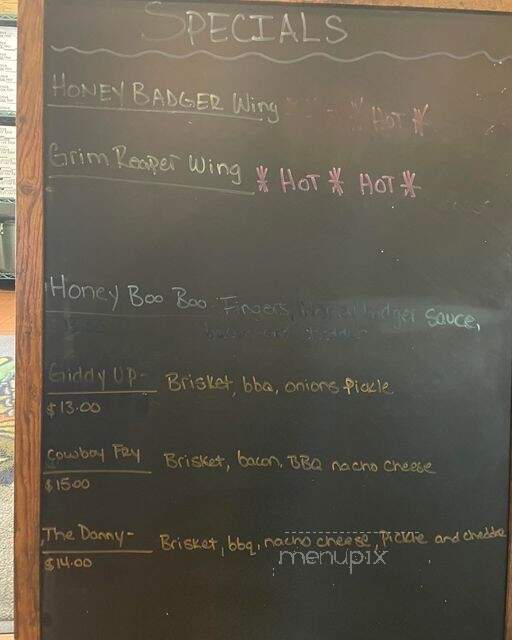 SPECIALS
HONEY BADGER Wing HOT
Grim Reaper Wing HOT HOT
Honey Boo Boo- Fingers, badger Sauce,
Giddy UP- Brisket, bbq, onions pickle
$13.00
Cowboy Fry Brisket, bacon, BBQ nacho cheese
$15.00
The Danny- Brisket, bbq, nacho cheese, Pickle and cheddar
$14.00
menupix